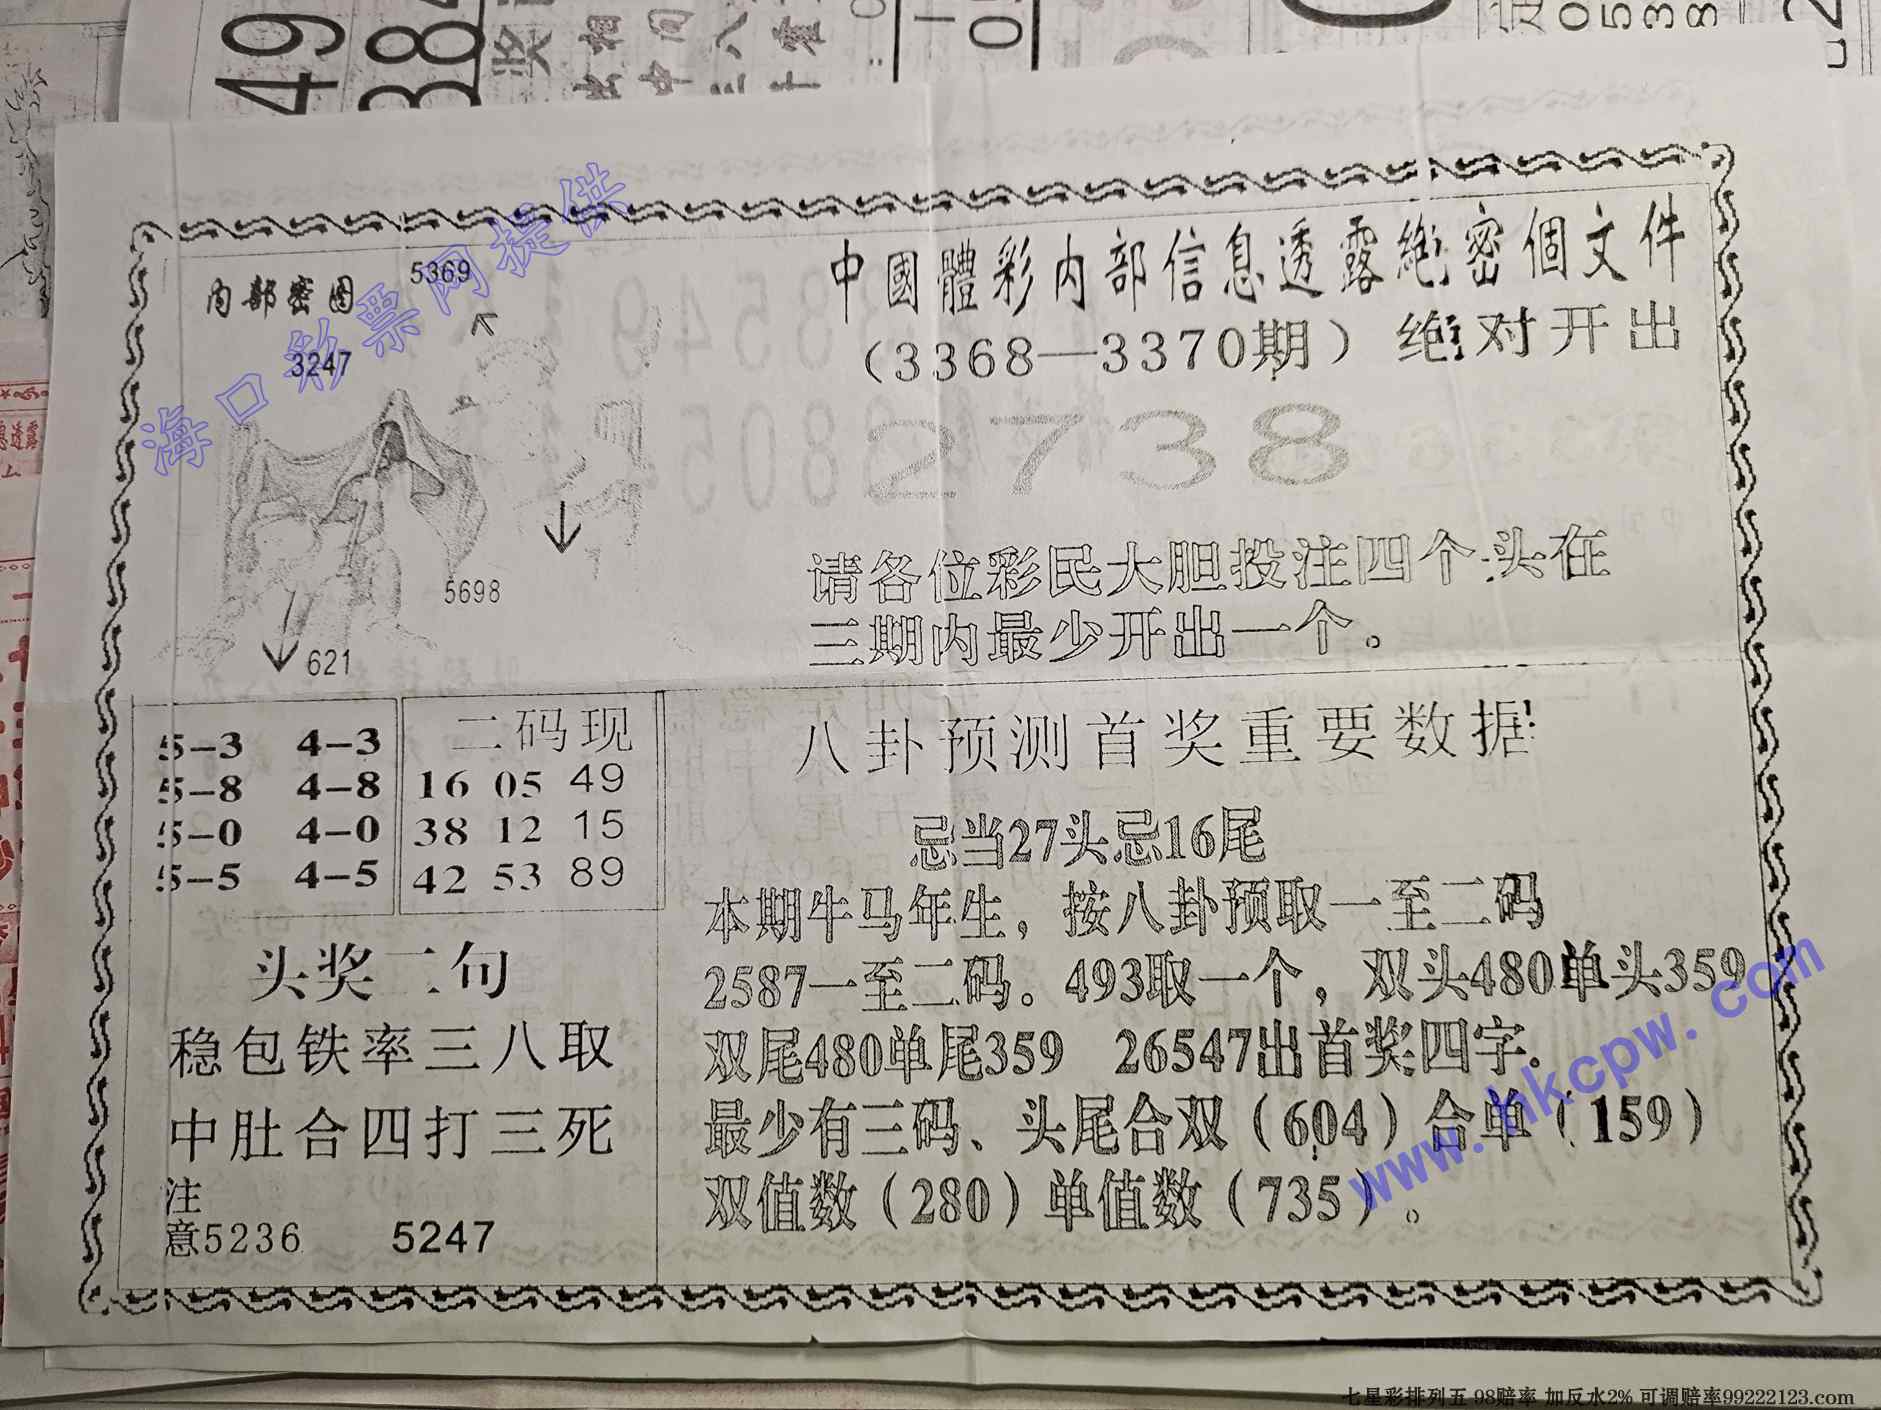 中國體彩内部信息透露絶密個文件
(3368—3370期)绝对开出
2738
请各位彩民大胆投注四个头在
三期内最少开出一个。
内部密图
5369
3247
5698
621
5-3 4-3
5-8 4-8
5-0 4-0
5-5 4-5
二码现
16 05 49
38 12 15
42 53 89
头奖二句
稳包铁率三八取
中肚合四打三死
注
意5236 5247
八卦预测首奖重要数据
忌当27头忌16尾
本期牛马年生，按八卦预取一至二码
2587一至二码．493取一个，双头480单头359
双尾480单尾359 26547出首奖四字．
最少有三码、头尾合双（604）合单（159）
双值数（280）单值数（735）。
海口彩票网提供
www.hkcpw.com
七星彩排列五 98赔率 加反水2% 可调赔率99222123.com